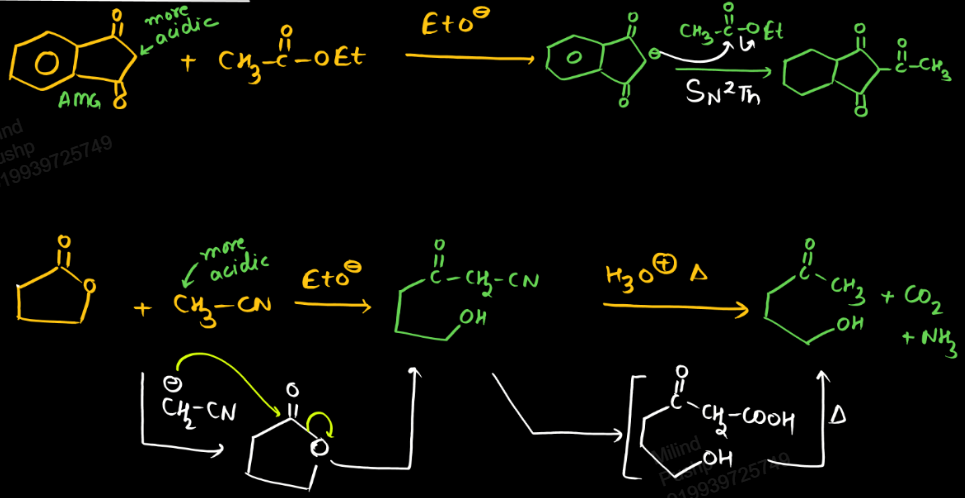 more acidic
AMG
O
O
+ CH3-C-OEt
O
EtO⊖
O
O
⊖
CH3-C-OEt
O
SN2Th
O
O
C-CH3
O
ind
ushp
19939725749
O
O
+
more acidic
CH3-CN
EtO⊖
O
C-CH2-CN
OH
H3O⊕ Δ
O
C-CH3
OH
+ CO2
+ NH3
⊖
CH2-CN
O
O
O
C-CH2-COOH
OH
Δ
Milind
Pushp
919939725749